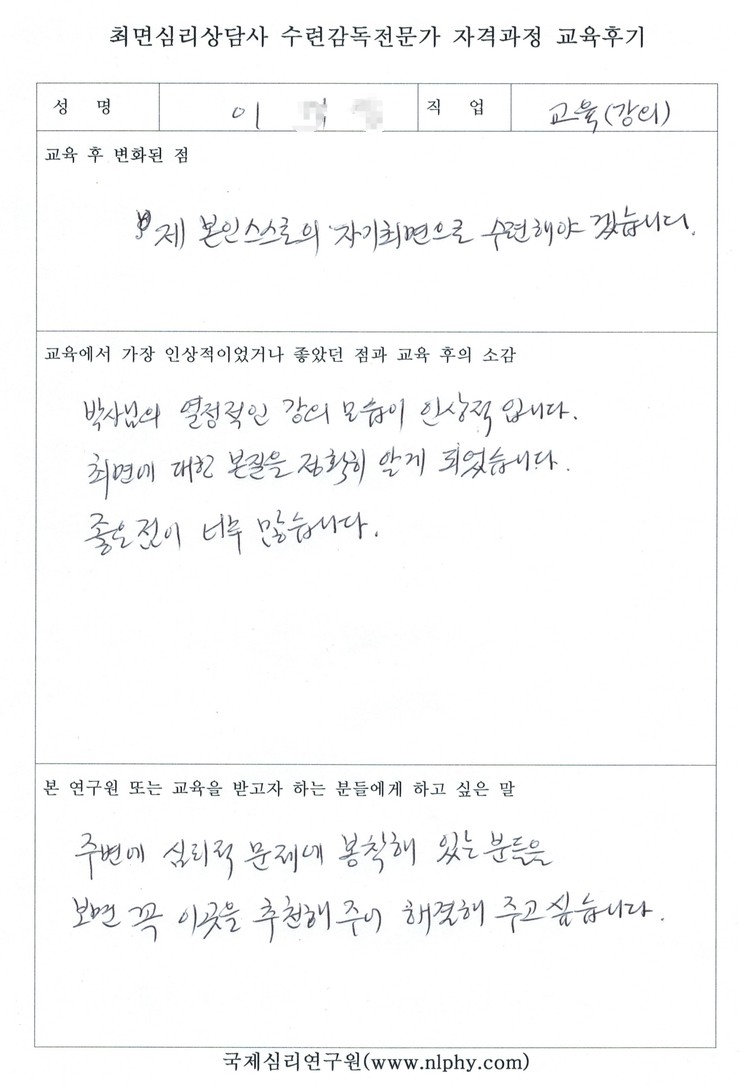 최면심리상담사 수련감독전문가 자격과정 교육후기
성 명 이 직 업 교육(강의)
교육 후 변화된 점
제 본인스스로의 자기최면으로 수련해야 겠습니다.
교육에서 가장 인상적이었거나 좋았던 점과 교육 후의 소감
박사님의 열정적인 강의 모습이 인상적 입니다.
최면에 대한 본질을 정확히 알게 되었습니다.
좋은점이 너무 많습니다.
본 연구원 또는 교육을 받고자 하는 분들에게 하고 싶은 말
주변에 심리적 문제에 봉착해 있는 분들을
보면 꼭 이곳을 추천해 주어 해결해 주고 싶습니다.
국제심리연구원(www.nlphy.com)